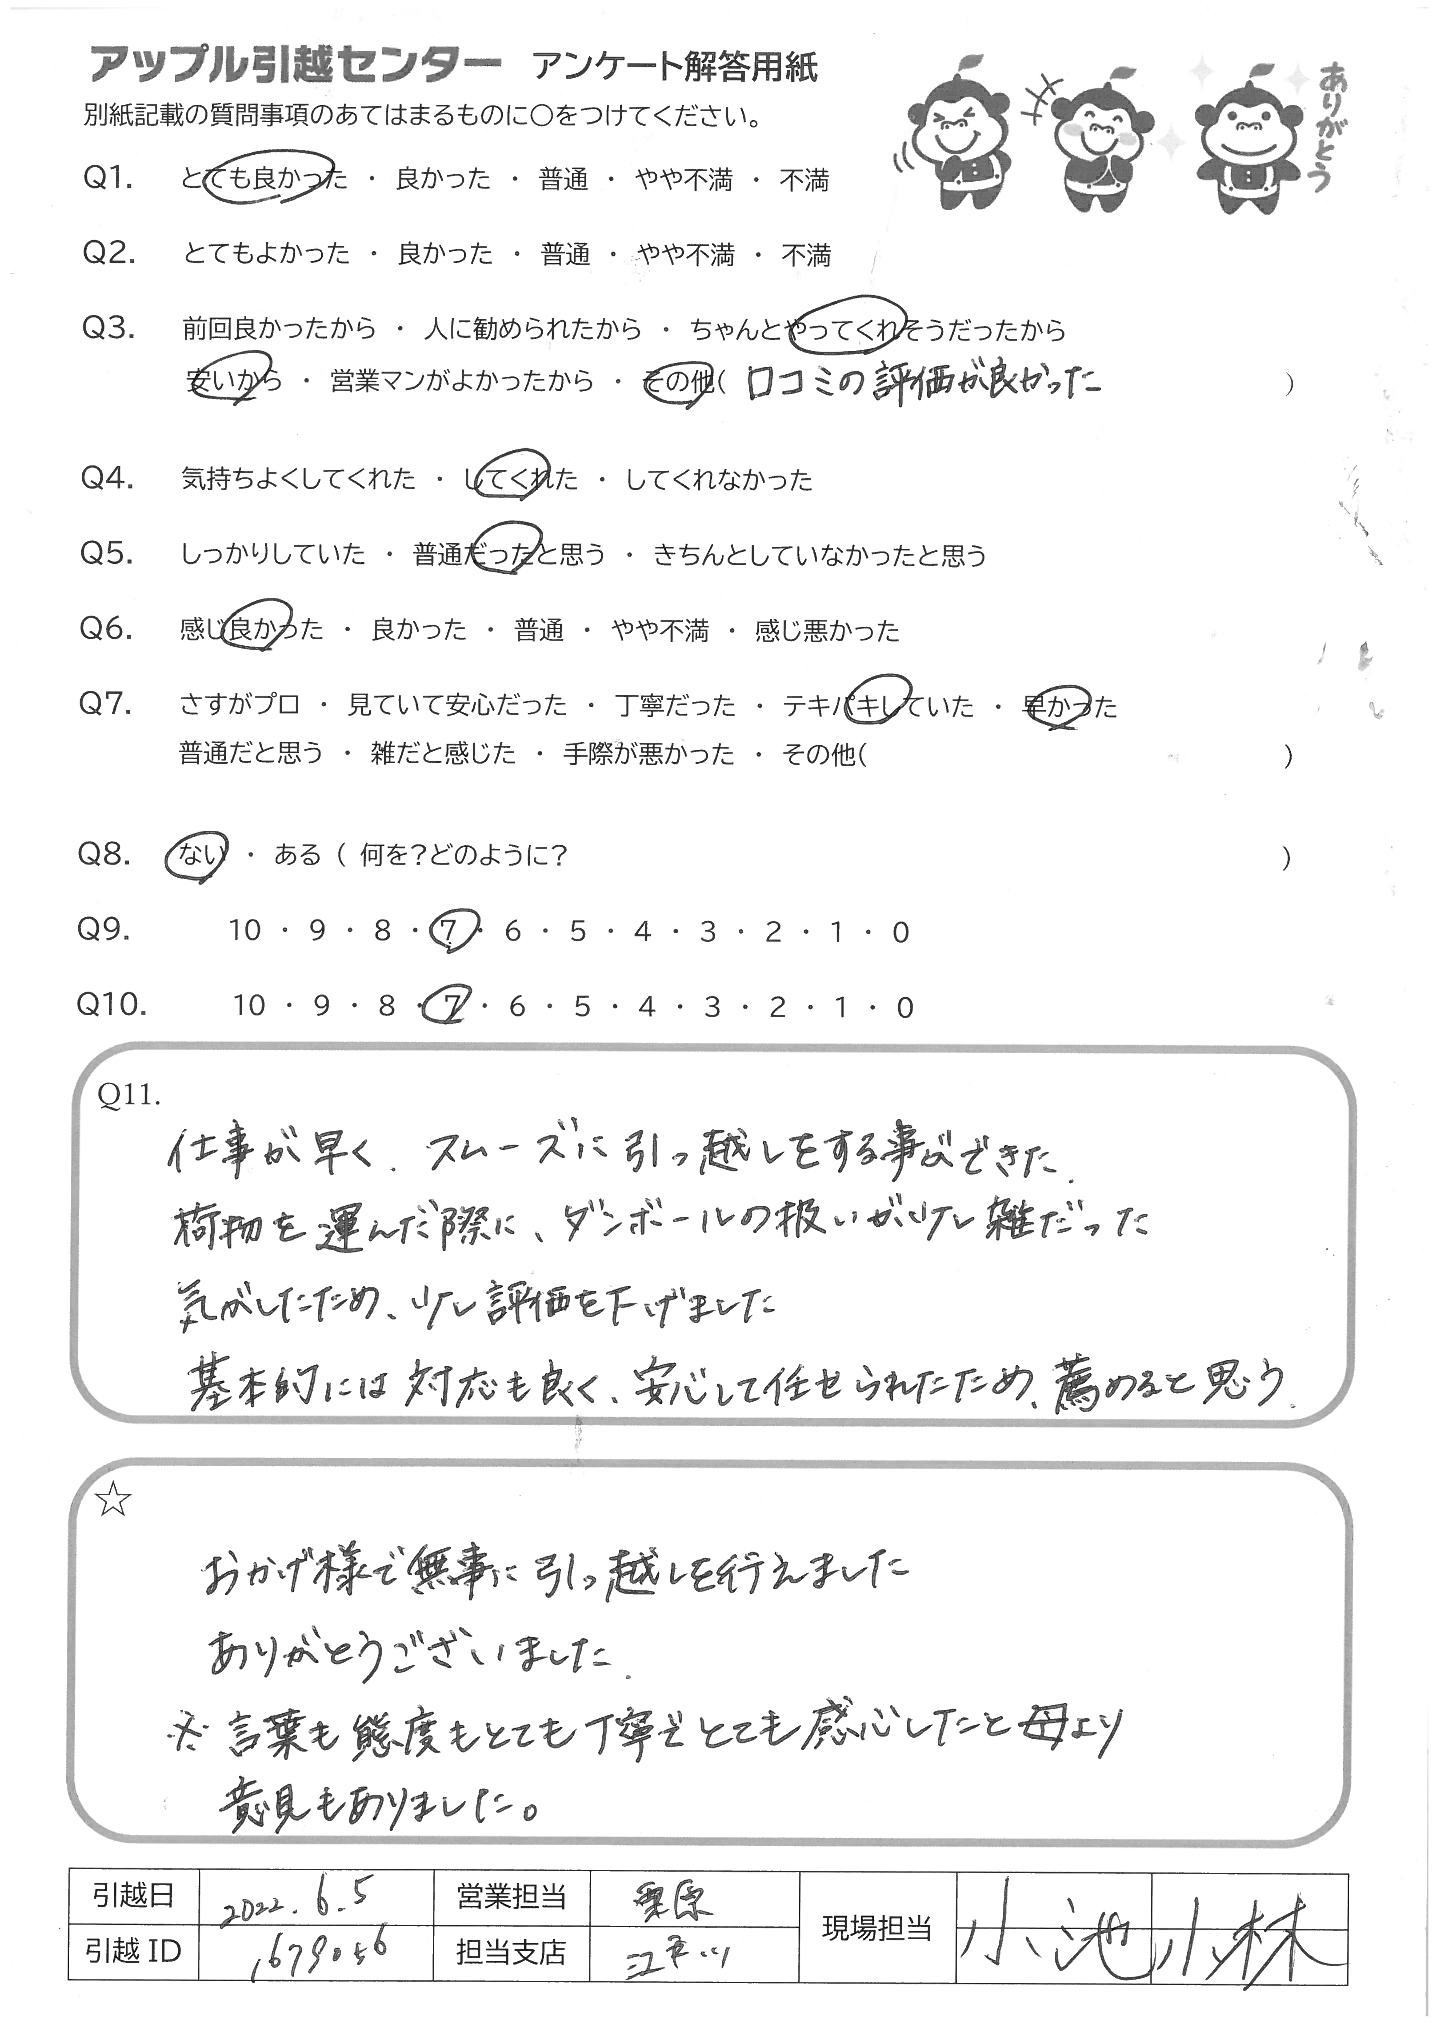 アップル引越センター アンケート解答用紙
ありがとう
別紙記載の質問事項のあてはまるものに○をつけてください。
Q1. とても良かった ・ 良かった ・ 普通 ・ やや不満 ・ 不満
Q2. とてもよかった ・ 良かった ・ 普通 ・ やや不満 ・ 不満
Q3. 前回良かったから ・ 人に勧められたから ・ ちゃんとやってくれそうだったから
安いから ・ 営業マンがよかったから ・ その他( 口コミの評価が良かった )
Q4. 気持ちよくしてくれた ・ してくれた ・ してくれなかった
Q5. しっかりしていた ・ 普通だったと思う ・ きちんとしていなかったと思う
Q6. 感じ良かった ・ 良かった ・ 普通 ・ やや不満 ・ 感じ悪かった
Q7. さすがプロ ・ 見ていて安心だった ・ 丁寧だった ・ テキパキしていた ・ 早かった
普通だと思う ・ 雑だと感じた ・ 手際が悪かった ・ その他( )
Q8. ない ・ ある ( 何を?どのように? )
Q9. 10 ・ 9 ・ 8 ・ 7 ・ 6 ・ 5 ・ 4 ・ 3 ・ 2 ・ 1 ・ 0
Q10. 10 ・ 9 ・ 8 ・ 7 ・ 6 ・ 5 ・ 4 ・ 3 ・ 2 ・ 1 ・ 0
Q11.
仕事が早く、スムーズに引っ越しをする事ができた.
荷物を運んだ際に、ダンボールの扱いが少し雑だった
気がしたため、少し評価を下げました
基本的には対応も良く、安心して任せられたため、薦めると思う.
☆
おかげ様で無事に引っ越しを行えました
ありがとうございました.
※言葉も態度もとても丁寧でとても感心したと母より
意見もありました。
引越日 2022.6.5 営業担当 栗原 現場担当 小池 小林
引越ID 1679056 担当支店 江戸川